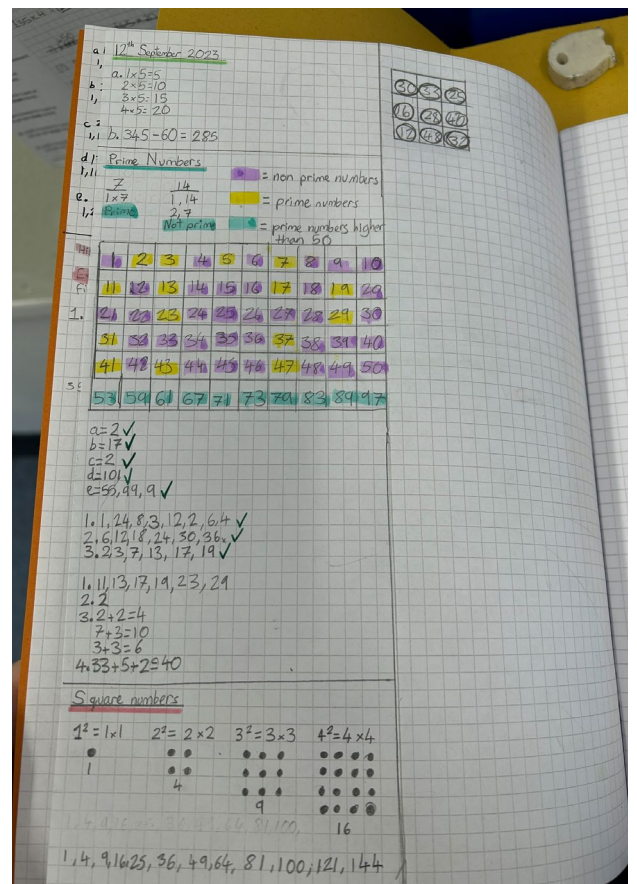 a: 12th September 2023
1,
a. 1×5=5
b: 2×5=10
1, 3×5=15
4×5=20
c:
1,1 b. 345-60=285
d: Prime Numbers
1,1,
7 14
e. 1×7 1,14
1,: Prime 2,7
Not prime
= non prime numbers
= prime numbers
= prime numbers higher
than 50
1 2 3 4 5 6 7 8 9 10
11 12 13 14 15 16 17 18 19 20
1. 21 22 23 24 25 26 27 28 29 30
31 32 33 34 35 36 37 38 39 40
41 42 43 44 45 46 47 48 49 50
53 59 61 67 71 73 79 83 89 97
a=2 ✓
b=17 ✓
c=2 ✓
d=101 ✓
e=55,99,9 ✓
1. 1,24,8,3,12,2,6,4 ✓
2. 6,12,18,24,30,36. ✓
3. 2,3,7,13,17,19 ✓
1. 11,13,17,19,23,29
2. 2
3. 2+2=4
7+3=10
3+3=6
4. 33+5+2=40
Square numbers
1²=1×1 2²=2×2 3²=3×3 4²=4×4
1
4
9
16
1,4,9,16,25,36,49,64,81,100,121,144
30 33 25
16 28
12 48 32